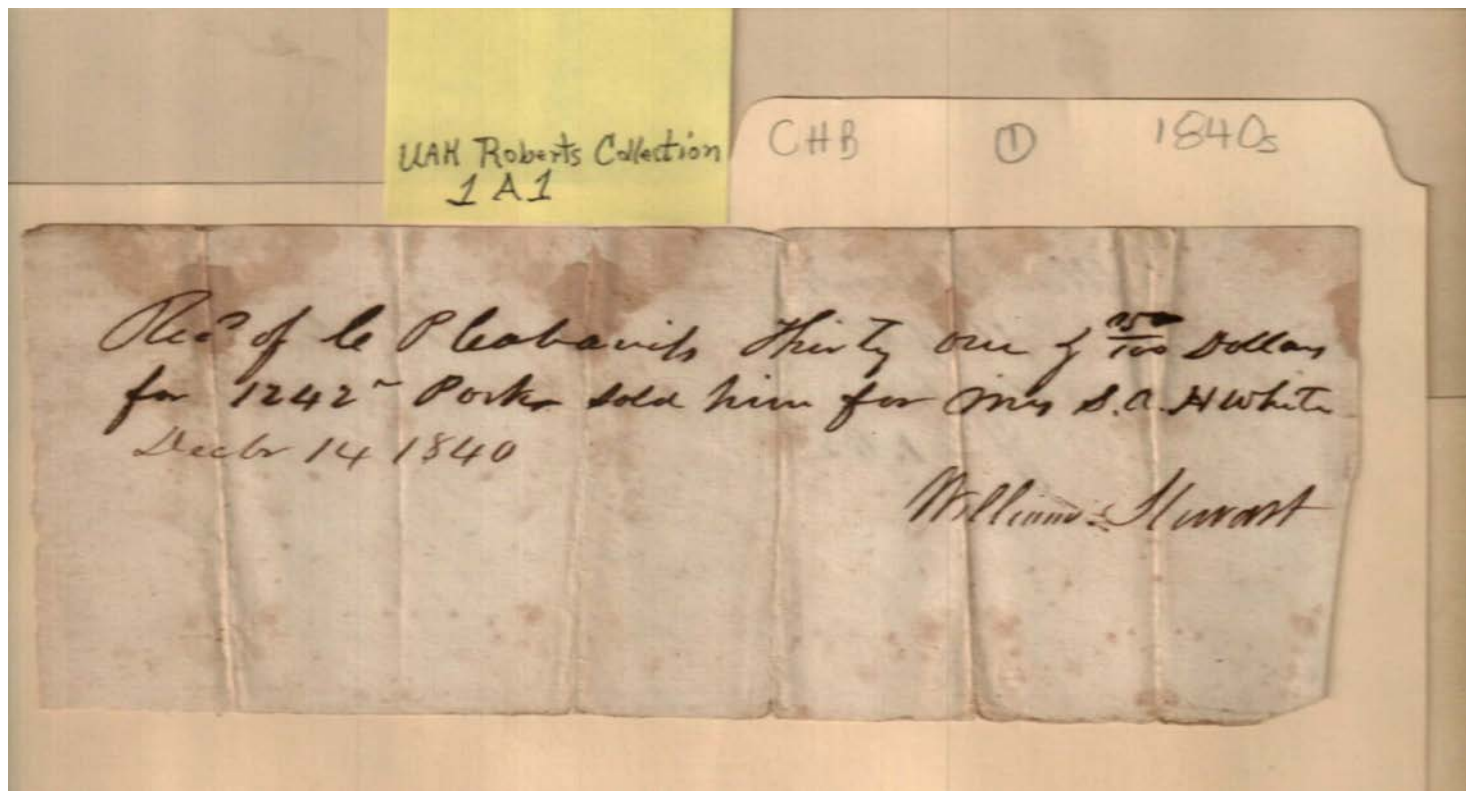 UAH Roberts Collection
1 A 1
CHB 1 1840s
Recd of C P Cabaniss Thirty one & 50/100 Dollars
for 1242 Pork sold him for Mrs S. A. H White
Decbr 14 1840
William Stewart